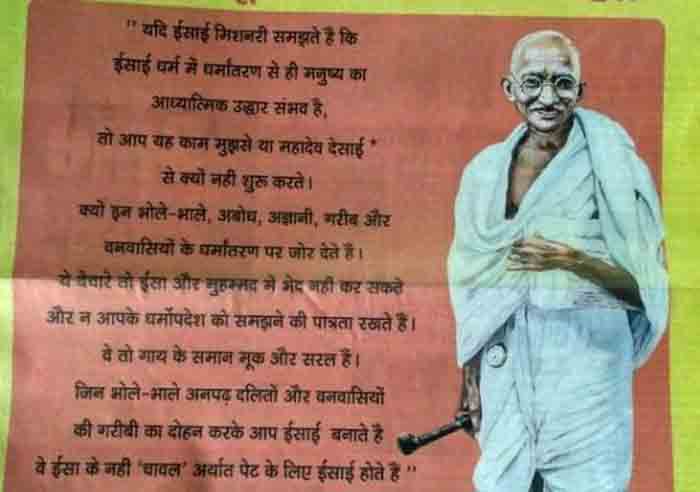 " यदि ईसाई मिशनरी समझते है कि
ईसाई धर्म में धर्मांतरण से ही मनुष्य का
आध्यात्मिक उद्धार संभव है,
तो आप यह काम मुझसे या महादेव देसाई *
से क्यों नही शुरू करते।
क्यों इन भोले-भाले, अबोध, अज्ञानी, गरीब और
वनवासियों के धर्मांतरण पर जोर देते हैं।
ये बेचारे तो ईसा और मुहम्मद में भेद नही कर सकते
और न आपके धर्मोपदेश को समझने की पात्रता रखते हैं।
वे तो गाय के समान मूक और सरल हैं।
जिन भोले-भाले अनपढ़ दलितों और वनवासियों
की गरीबी का दोहन करके आप ईसाई बनाते है
वे ईसा के नही 'चावल' अर्थात पेट के लिए ईसाई होते हैं "